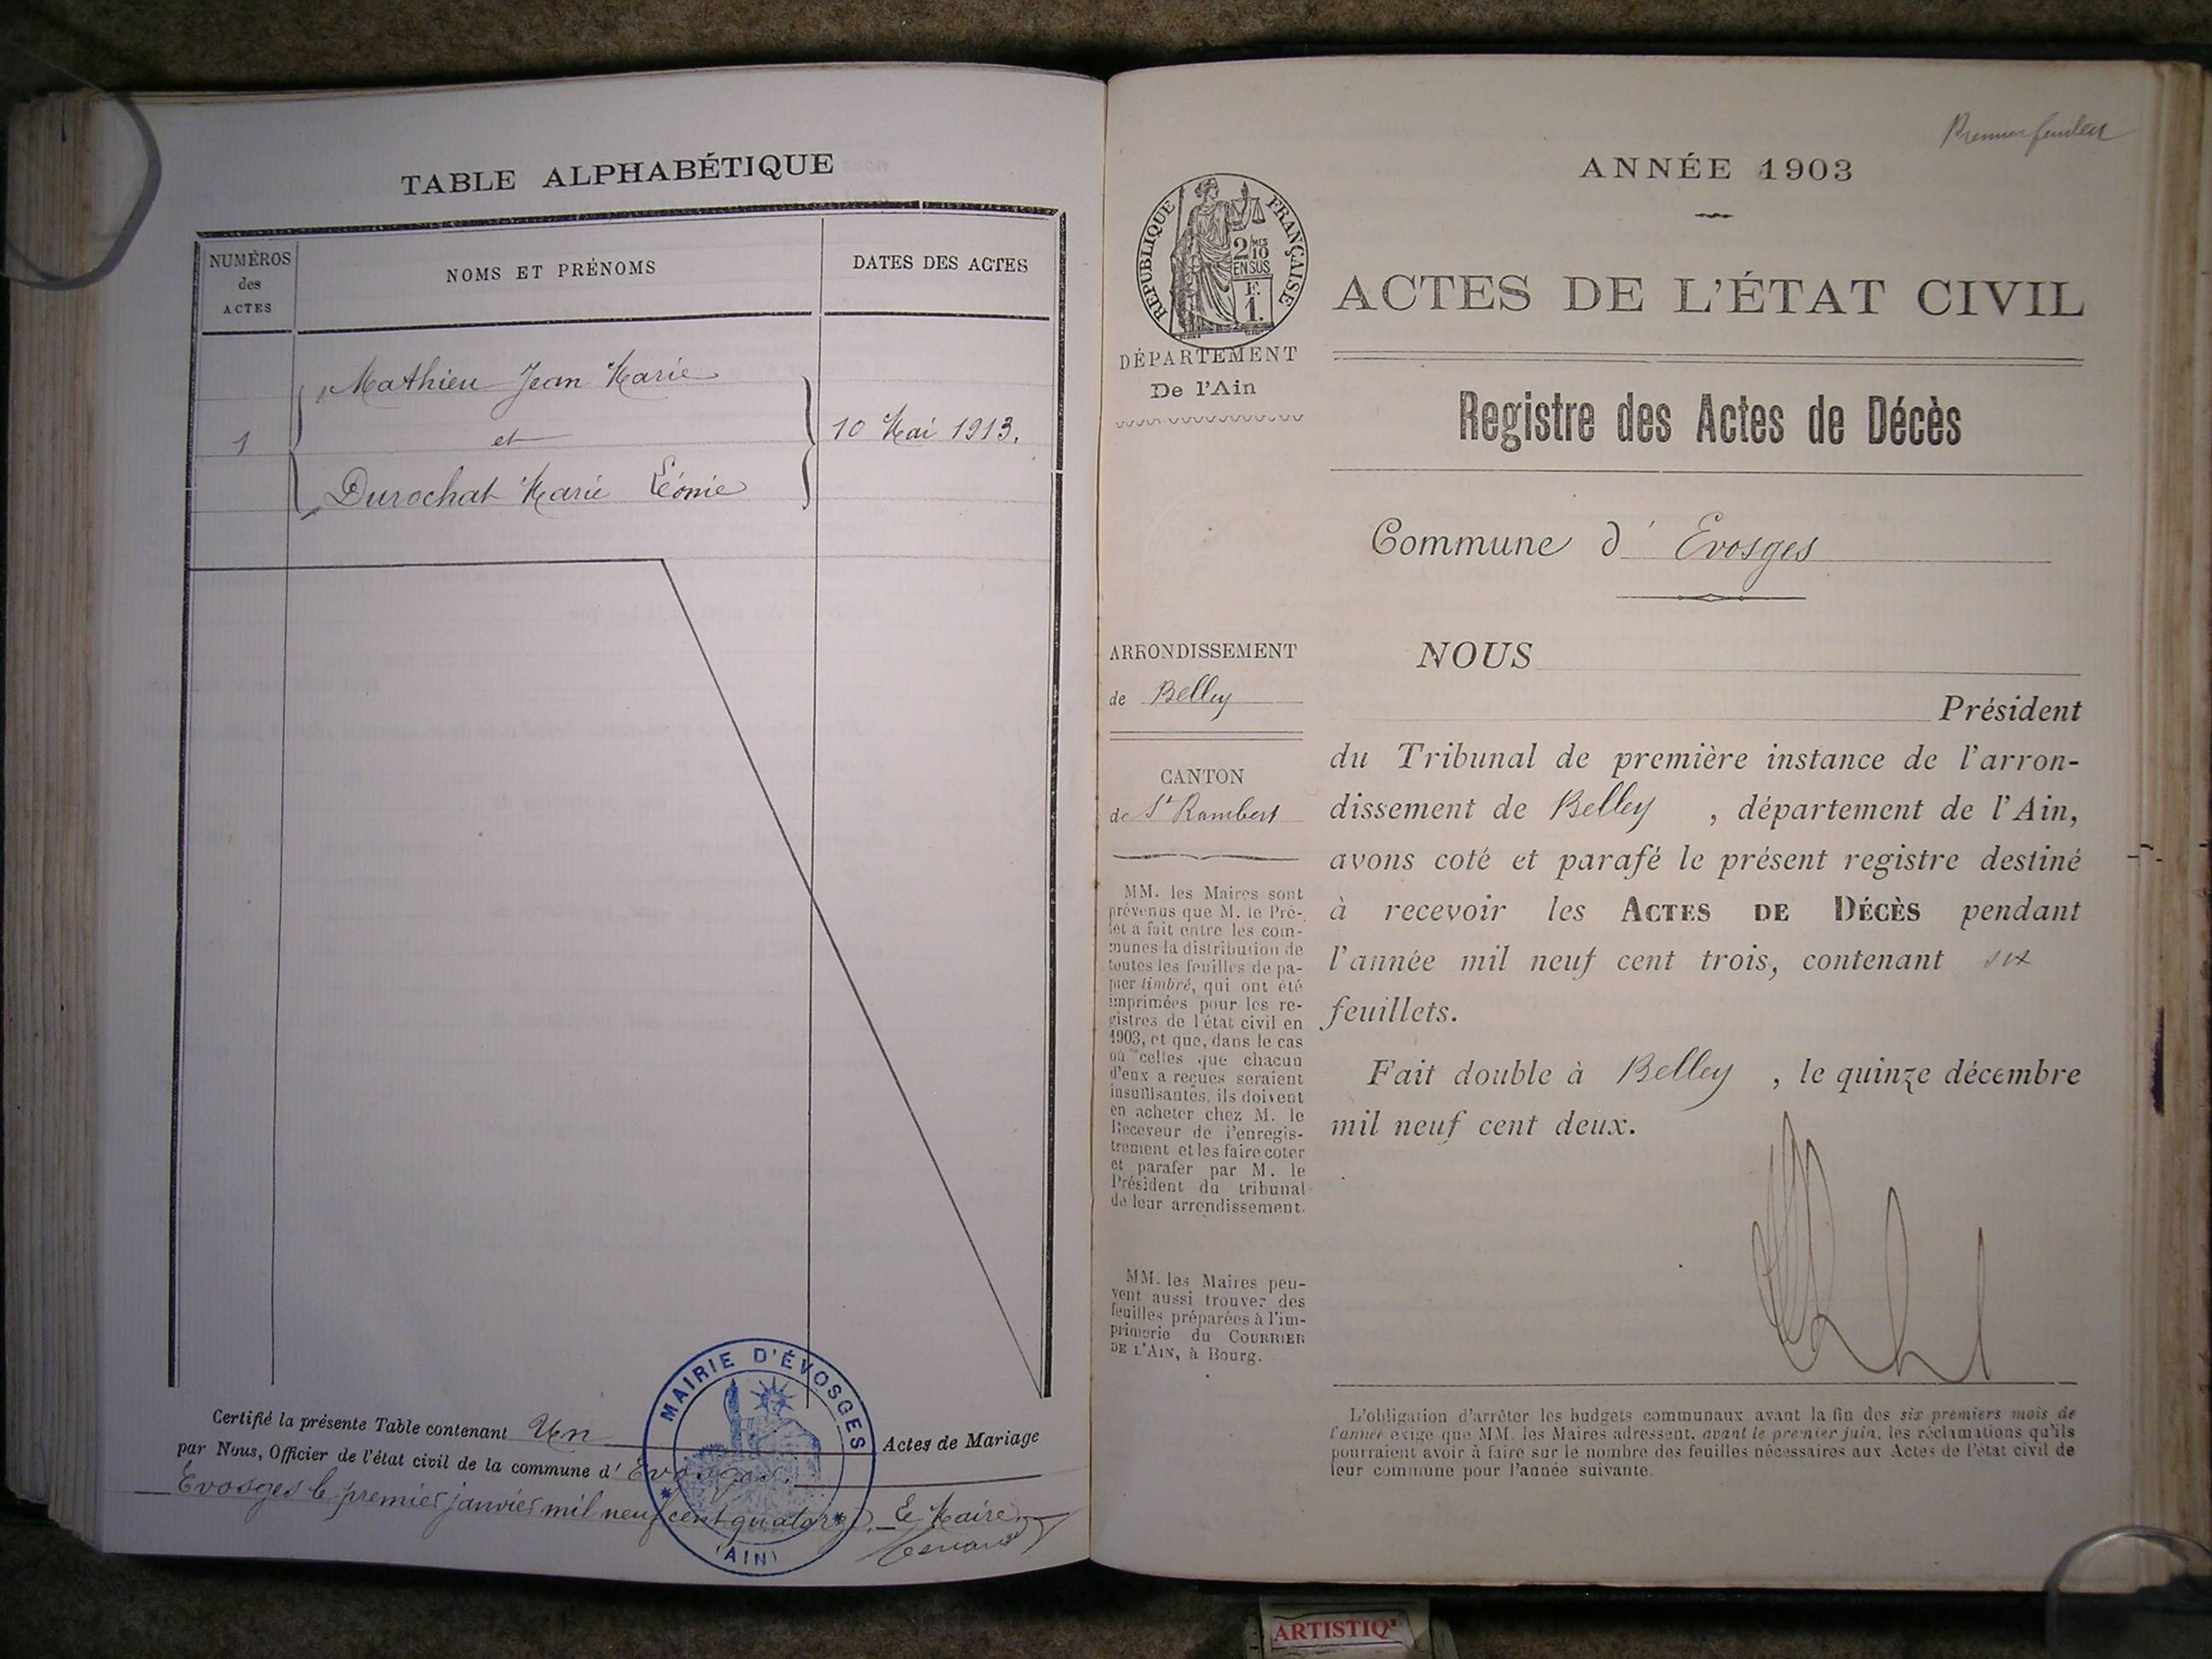 TABLE ALPHABÉTIQUE
NUMÉROS
des
ACTES
NOMS ET PRÉNOMS
DATES DES ACTES
Mathieu Jean Marie
1
et
10 Mai 1913.
Durochat Marie Léonie
Certifié la présente Table contenant Un Actes de Mariage
par Nous, Officier de l'état civil de la commune d' Evosges.
Evosges le premier janvier mil neuf cent quatorze. Le Maire
MAIRIE D'ÉVOSGES
(AIN)
Premier feuillet
ANNÉE 1903
RÉPUBLIQUE FRANÇAISE
2/10MES
EN SUS
F.
1.
ACTES DE L'ÉTAT CIVIL
DÉPARTEMENT
De l'Ain
Registre des Actes de Décès
Commune d' Evosges
ARRONDISSEMENT
de Belley
CANTON
de St Rambert
MM. les Maires sont
prévenus que M. le Pré-
fet a fait entre les com-
munes la distribution de
toutes les feuilles de pa-
pier timbré, qui ont été
imprimées pour les re-
gistres de l'état civil en
1903, et que, dans le cas
où celles que chacun
d'eux a reçues seraient
insuffisantes, ils doivent
en acheter chez M. le
Receveur de l'enregis-
trement et les faire coter
et parafer par M. le
Président du tribunal
de leur arrondissement.
MM. les Maires peu-
vent aussi trouver des
feuilles préparées à l'im-
primerie du COURRIER
DE L'AIN, à Bourg.
NOUS
Président
du Tribunal de première instance de l'arron-
dissement de Belley , département de l'Ain,
avons coté et parafé le présent registre destiné
à recevoir les ACTES DE DÉCÈS pendant
l'année mil neuf cent trois, contenant six
feuillets.
Fait double à Belley , le quinze décembre
mil neuf cent deux.
L'obligation d'arrêter les budgets communaux avant la fin des six premiers mois de
l'année exige que MM. les Maires adressent, avant le premier juin, les réclamations qu'ils
pourraient avoir à faire sur le nombre des feuilles nécessaires aux Actes de l'état civil de
leur commune pour l'année suivante.
ARTISTIQ